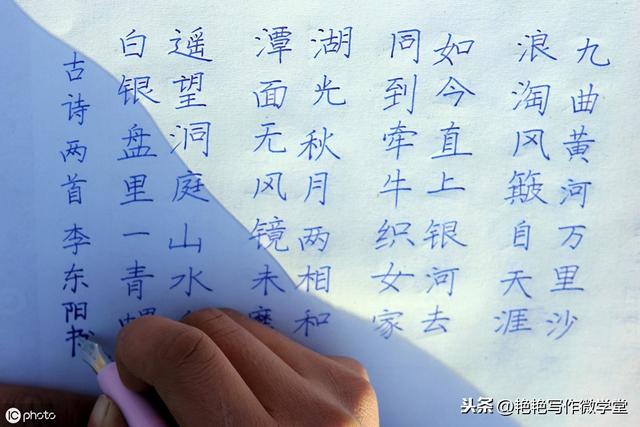 九曲黄河万里沙
浪淘风簸自天涯
如今直上银河去
同到牵牛织女家
湖光秋月两相和
潭面无风镜未
遥望洞庭山水
白银盘里一青
古诗两首 李东阳书
iC photo
头条 @艳艳写作微学堂